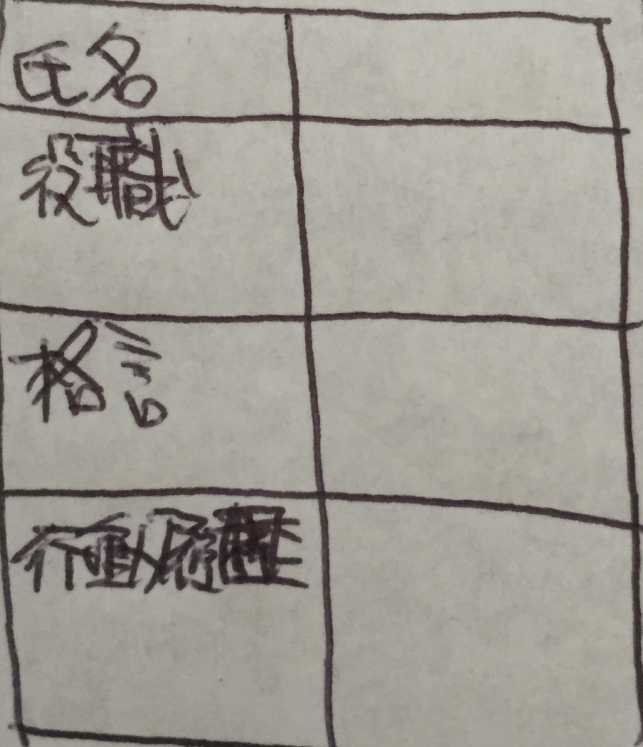 氏名
役職
格言
行動履歴